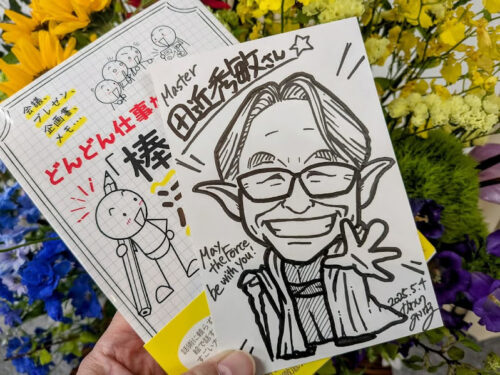 会議、
プレゼン、
企画書、
メモ…
どんどん仕事
「棒
Master
田近秀敏さん☆
May
the Force
be with you.
2025.5.4